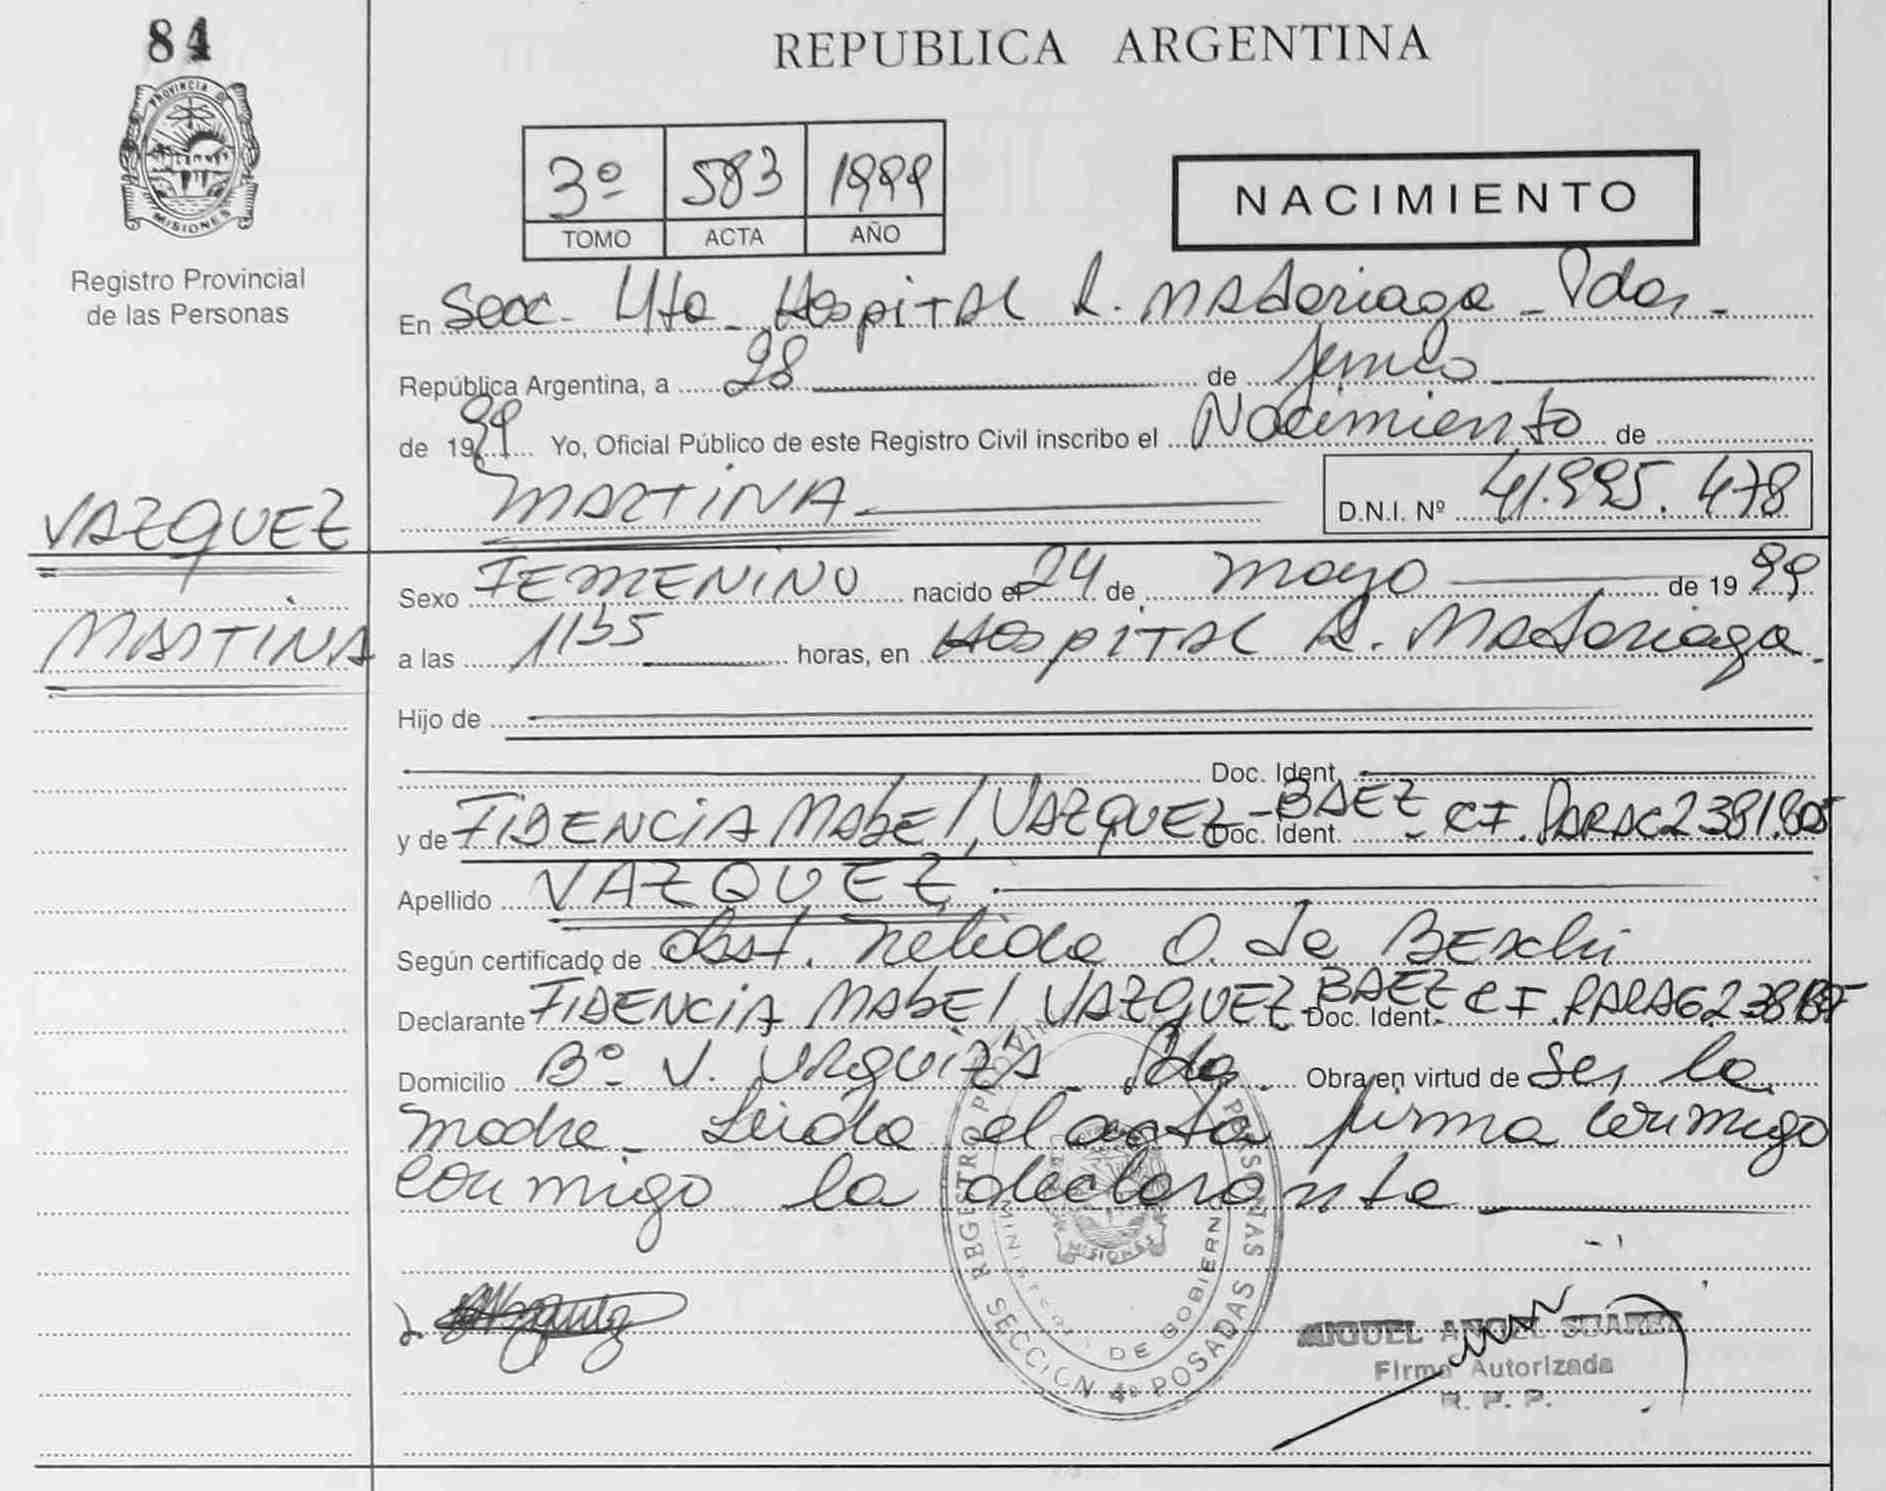 84
REPUBLICA ARGENTINA
PROVINCIA DE
MISIONES
Registro Provincial
de las Personas
3º 583 1999
TOMO ACTA AÑO
NACIMIENTO
En Secc. 4ta _ Hospital R. Madariaga _ Pdas _
República Argentina, a 28 de junio
de 1999 Yo, Oficial Público de este Registro Civil inscribo el Nacimiento de
MARTINA D.N.I. Nº 41.995.478
VAZQUEZ
MARTINA
Sexo FEMENINO nacido el 24 de mayo de 1999
a las 1155 horas, en Hospital R. Madariaga.
Hijo de
Doc. Ident.
y de FIDENCIA MABEL VAZQUEZ - BAEZ Doc. Ident. - CI. PARAG 2381.805
Apellido VAZQUEZ.
Según certificado de obst. Nelida O. de
Declarante FIDENCIA MABEL VAZQUEZ - BAEZ Doc. Ident. CI. PARAG
Domicilio Bº V. URQUIZA _ Pdas. Obra en virtud de Ser la
madre _ Leida el acta firma conmigo
conmigo la declarante
MISIONES
SECCION 4º POSADAS
DE GOBIERNO
MIGUEL ANGEL SUAREZ
Firma Autorizada
R. P. P.